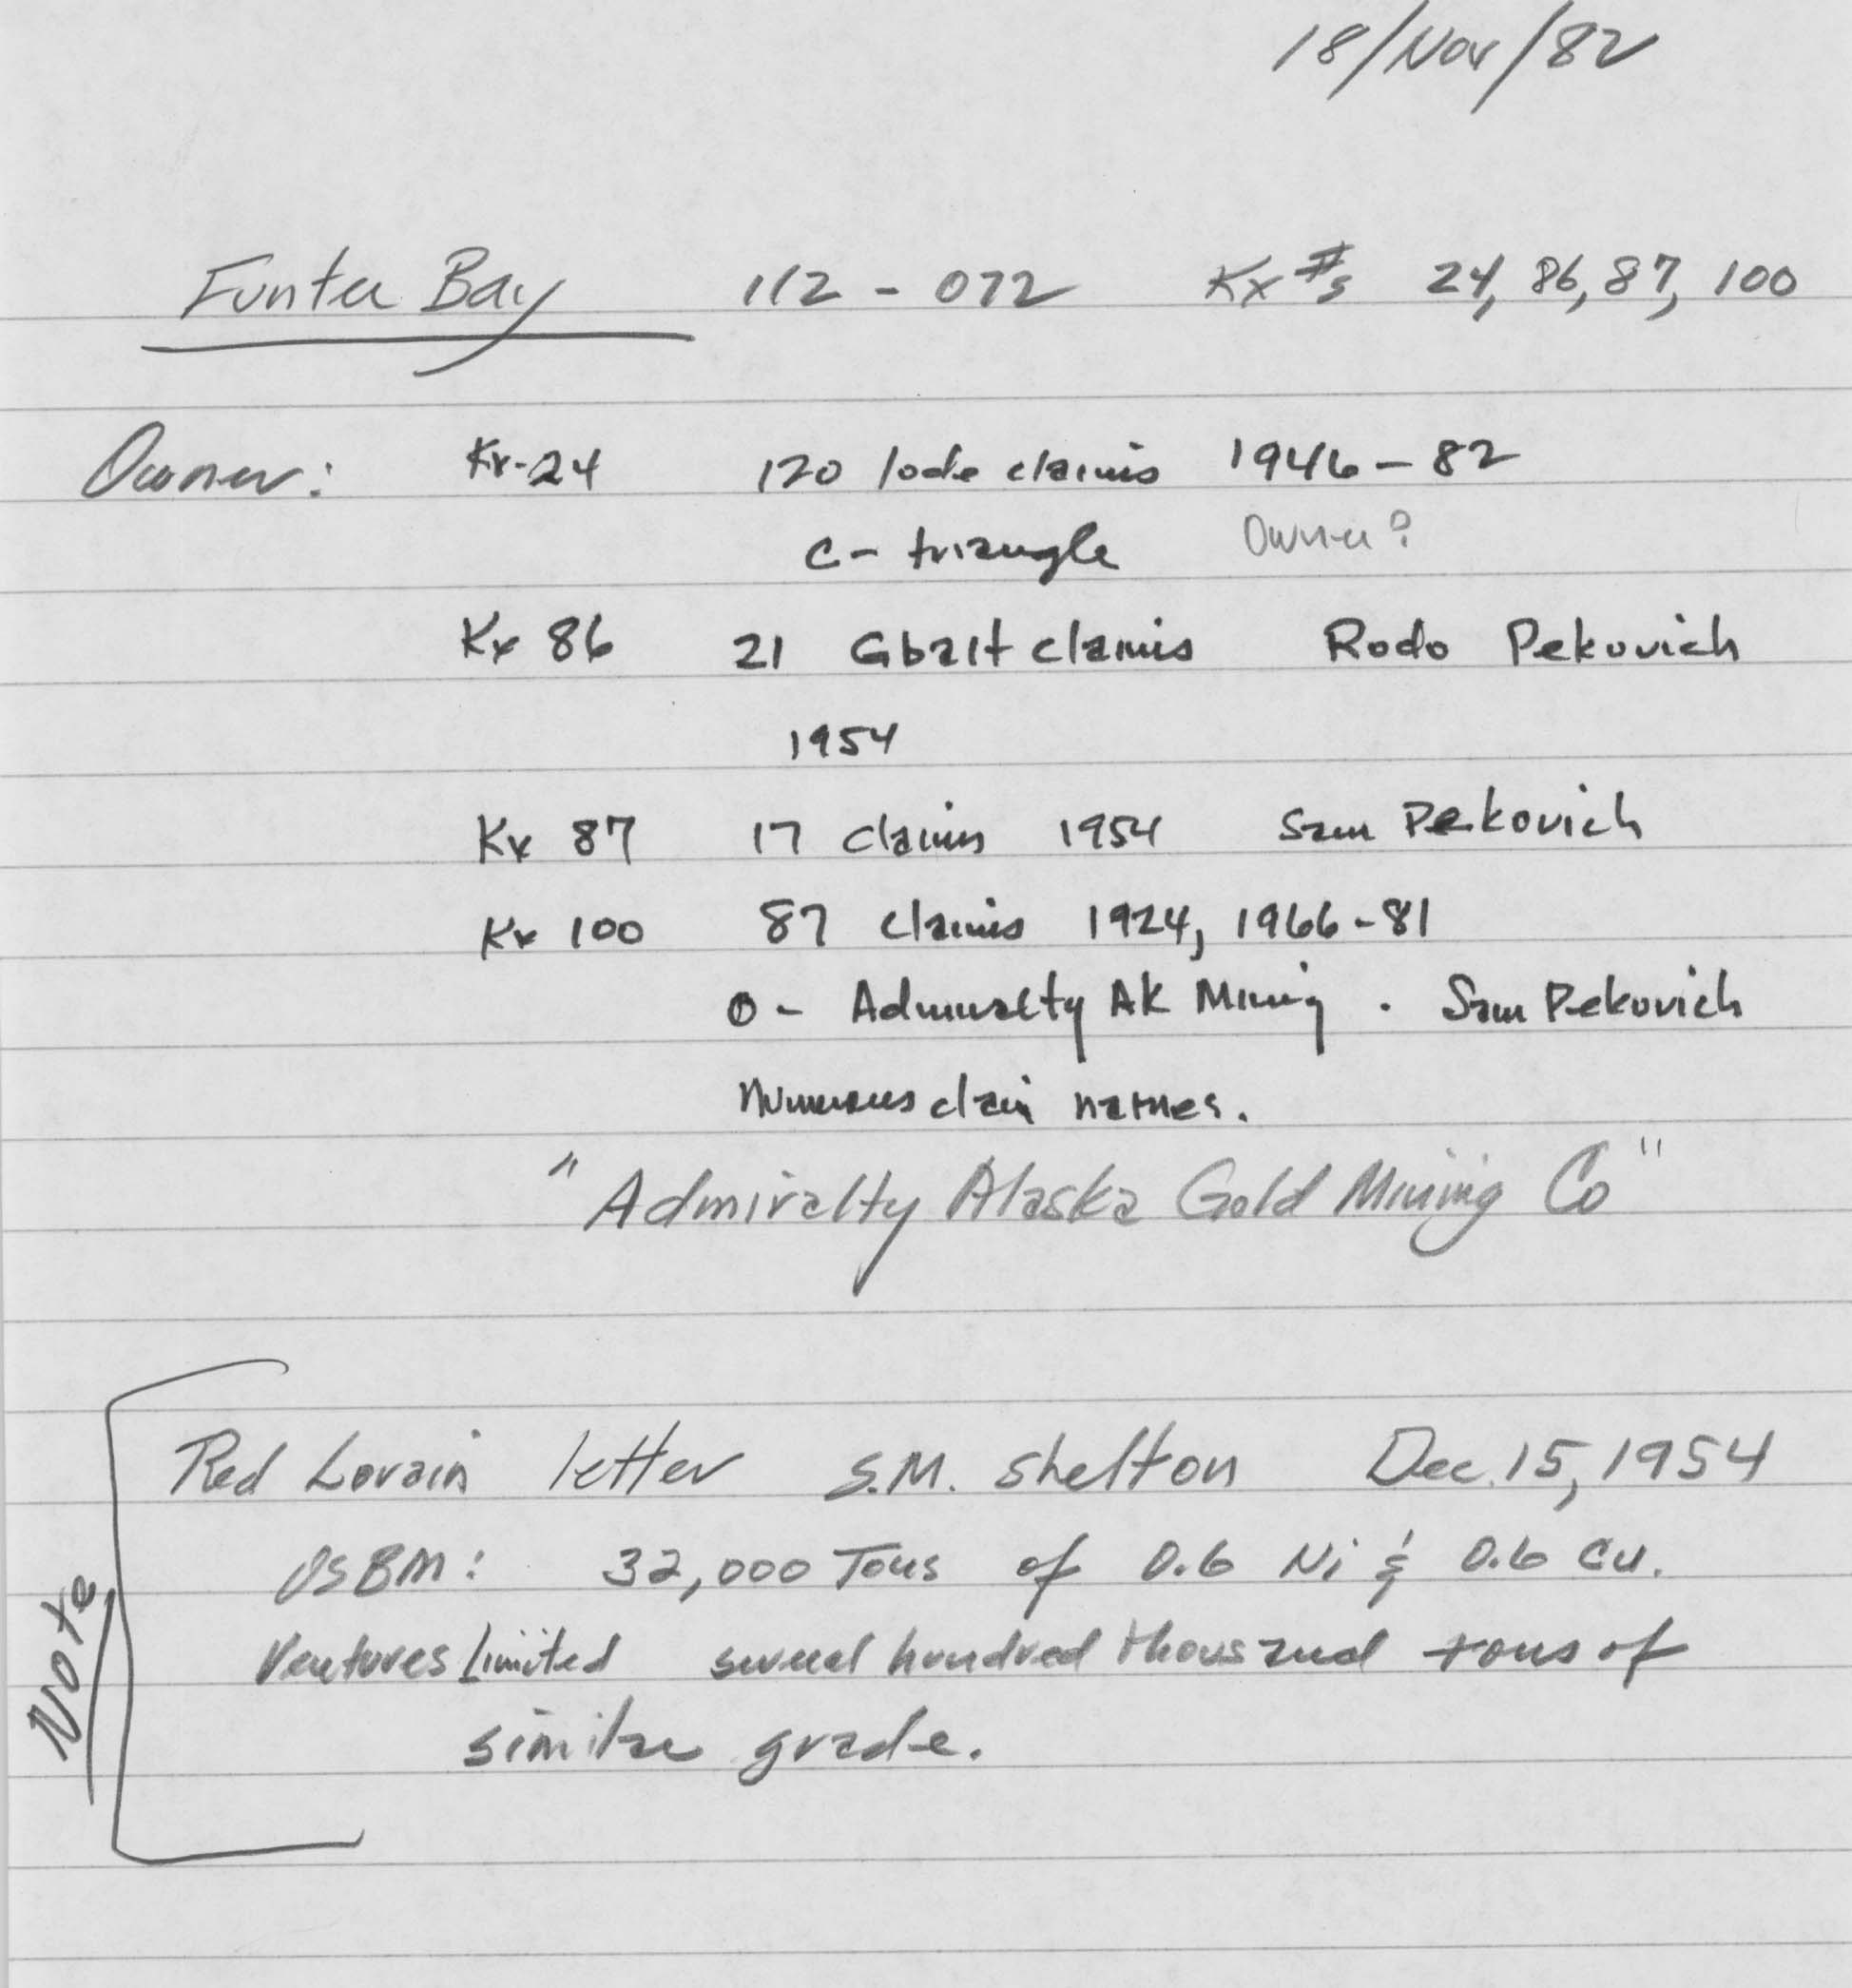 18/Nov/82
Funter Bay 112-072 Kx #s 24, 86, 87, 100
Owner: Kx-24 120 lode claims 1946-82
C- triangle Owner?
Kx 86 21 Cobalt claims Rodo Pekovich
1954
Kx 87 17 claims 1954 Sam Pekovich
Kx 100 87 claims 1924, 1966-81
O- Admiralty AK Mining . Sam Pekovich
Numerous claim names.
"Admiralty Alaska Gold Mining Co"
Note
Red Lorain letter S.M. Shelton Dec. 15, 1954
USBM: 32,000 Tons of 0.6 Ni & 0.6 Cu.
Ventures Limited several hundred thousand tons of
similar grade.